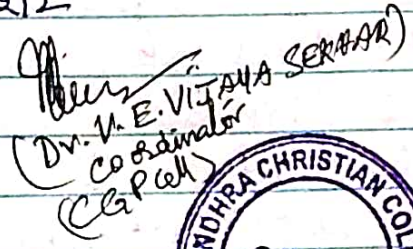 (Dr. K. E. VIJAYA SEKHAR)
Coordinator
(CGP Cell)
NDHRA CHRISTIAN COL